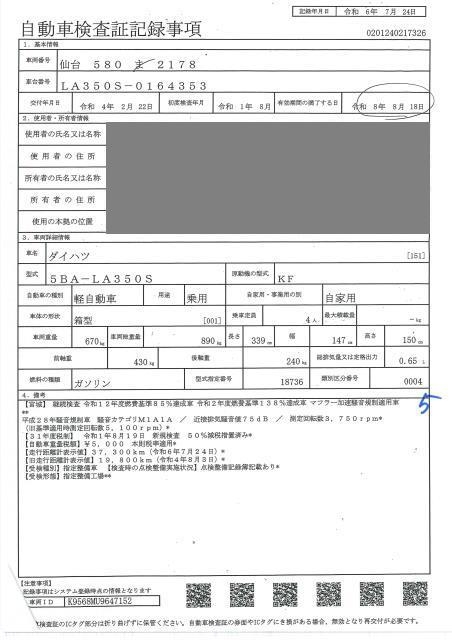 記録年月日 令和 6年 7月 24日
自動車検査証記録事項
0201240217326
1. 基本情報
車両番号 仙台 580 ま 2178
車台番号 LA350S-0164353
交付年月日 令和 4年 2月 22日 初度検査年月 令和 1年 8月 有効期間の満了する日 令和 8年 8月 18日
2. 使用者・所有者情報
使用者の氏名又は名称
使用者の住所
所有者の氏名又は名称
所有者の住所
使用の本拠の位置
3. 車両詳細情報
車名 ダイハツ [151]
型式 5BA-LA350S 原動機の型式 KF
自動車の種別 軽自動車 用途 乗用 自家用・事業用の別 自家用
車体の形状 箱型 [001] 乗車定員 4人 最大積載量 -kg
車両重量 670kg 車両総重量 890kg 長さ 339cm 幅 147cm 高さ 150cm
前軸重 430kg 後軸重 240kg 総排気量又は定格出力 0.65L
燃料の種類 ガソリン 型式指定番号 18736 類別区分番号 0004
4. 備考
5
【宮城】 継続検査 令和12年度燃費基準85%達成車 令和2年度燃費基準138%達成車 マフラー加速騒音規制適用車
**
平成28年騒音規制車 騒音カテゴリM1A1A / 近接排気騒音値75dB / 測定回転数3,750rpm*
(旧基準適用時測定回転数5,100rpm)*
【31年度税制】 令和1年8月19日 新規検査 50%減税措置済み*
【自動車重量税額】¥5,000 本則税率適用*
【走行距離計表示値】37,300km(令和6年7月24日)*
【旧走行距離計表示値】19,800km(令和4年8月3日)*
【受検種別】指定整備車 【検査時の点検整備実施状況】点検整備記録簿記載あり*
【受検形態】指定整備工場**
【注意事項】
記録事項はシステム登録時点の情報となります
車両ID K9568MU9647152
検査証のICタグ部分は折り曲げずに保管ください。自動車検査証の券面やICタグにき損がある場合、無効となり再交付が必要です。